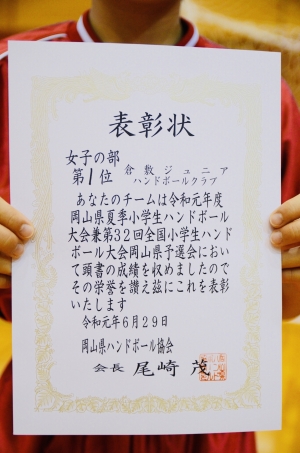 表彰状
女子の部
第1位 倉敷ジュニア
ハンドボールクラブ
あなたのチームは令和元年度
岡山県夏季小学生ハンドボール
大会兼第32回全国小学生ハンド
ボール大会岡山県予選会におい
て頭書の成績を収めましたので
その栄誉を讃え茲にこれを表彰
いたします
令和元年6月29日
岡山県ハンドボール協会
会長 尾崎 茂